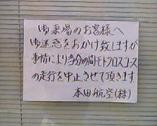 御来場のお客様へ
御迷惑をおかけ致しますが
事情により当分の間モトクロスコース
の走行を中止させて頂きます
本田航空(株)